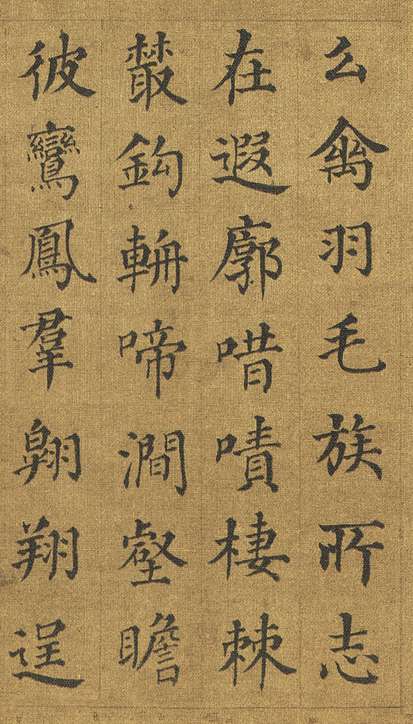 幺禽羽毛族所志
在遐廓唶嘖棲棘
叢鉤輈啼澗壑瞻
彼鸞鳳羣翱翔逞